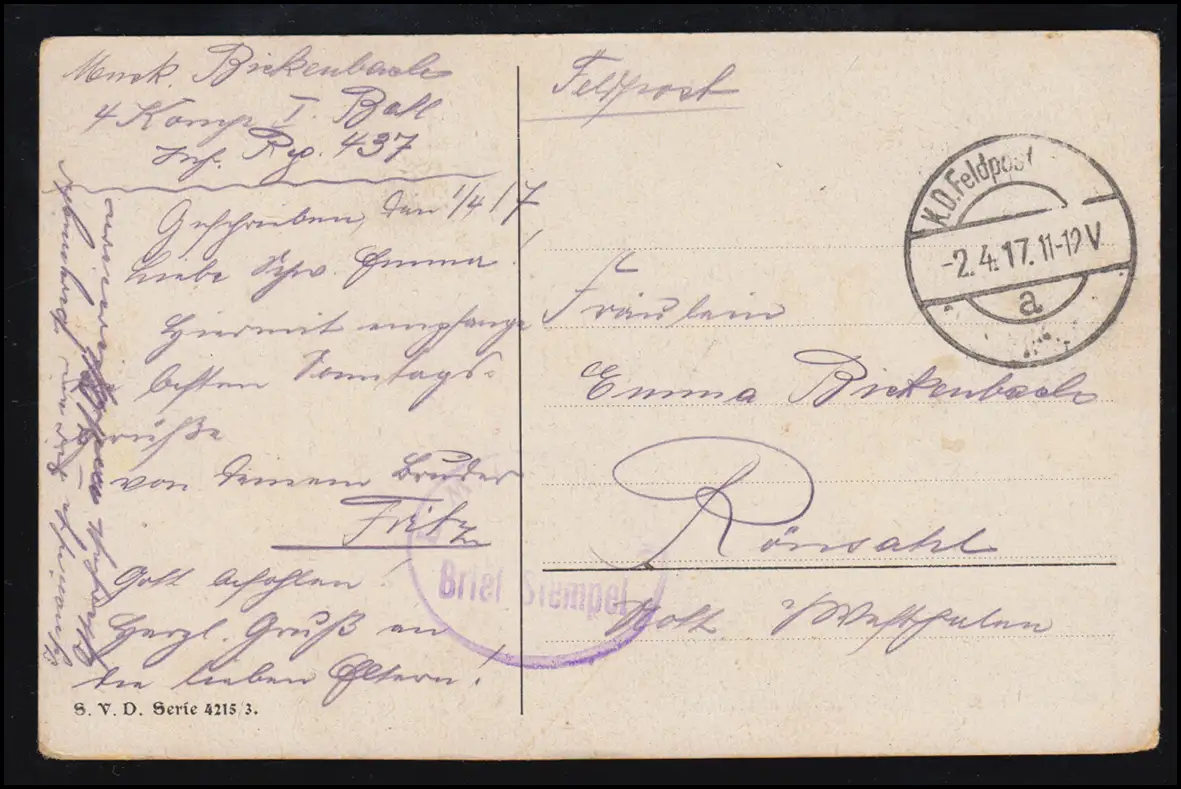 Musk. Bickenbach
4 Komp I. Batl
Inf. Rg. 437
Geschrieben, den 1/4 17
Liebe Schw. Emma!
Hiermit empfange
besten Sonntags-
grüße
von deinem Bruder
Fritz
Gott befohlen!
Herzl. Gruß an
die lieben Eltern!
S. V. D. Serie 4215/3.
Feldpost
K.D.Feldpost
-2.4.17.11-12V
a
Fräulein
Emma Bickenbach
Rönsahl
i/Westfalen
Brief Stempel